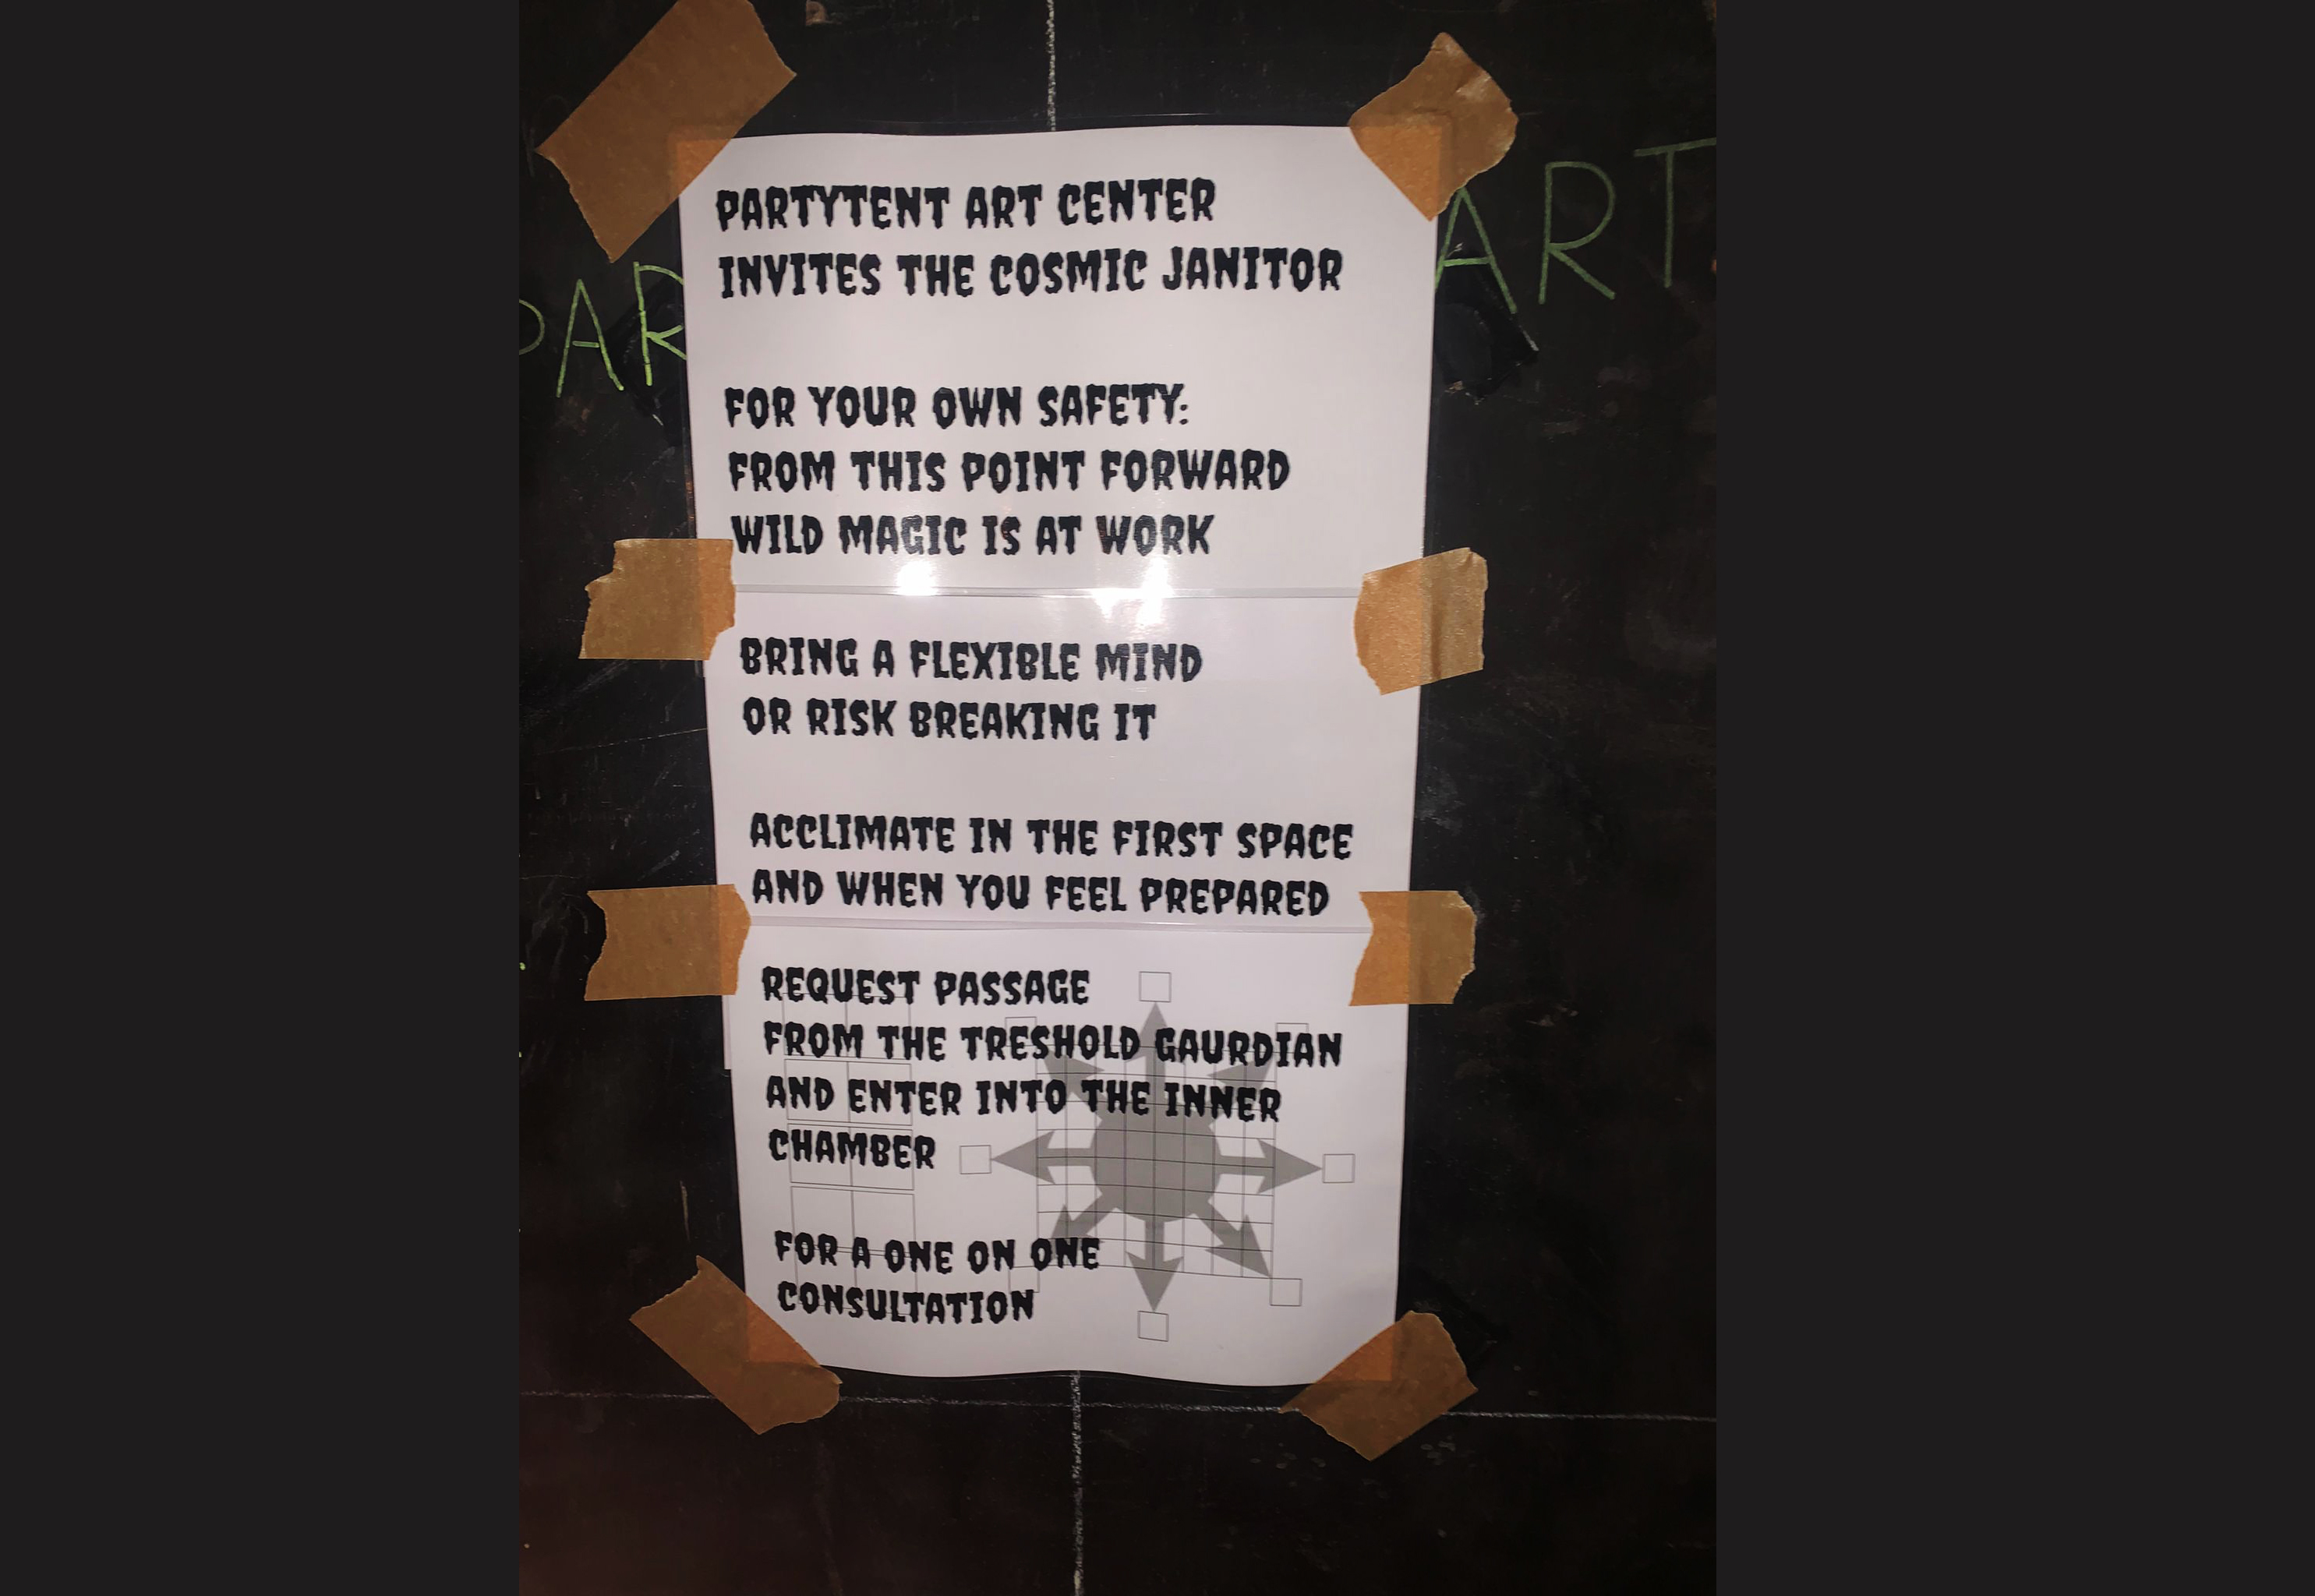 PARTYTENT ART CENTER
INVITES THE COSMIC JANITOR
PAR
ART
FOR YOUR OWN SAFETY:
FROM THIS POINT FORWARD
WILD MAGIC IS AT WORK
BRING A FLEXIBLE MIND
OR RISK BREAKING IT
ACCLIMATE IN THE FIRST SPACE
AND WHEN YOU FEEL PREPARED
REQUEST PASSAGE
FROM THE TRESHOLD GAURDIAN
AND ENTER INTO THE INNER
CHAMBER
FOR A ONE ON ONE
CONSULTATION